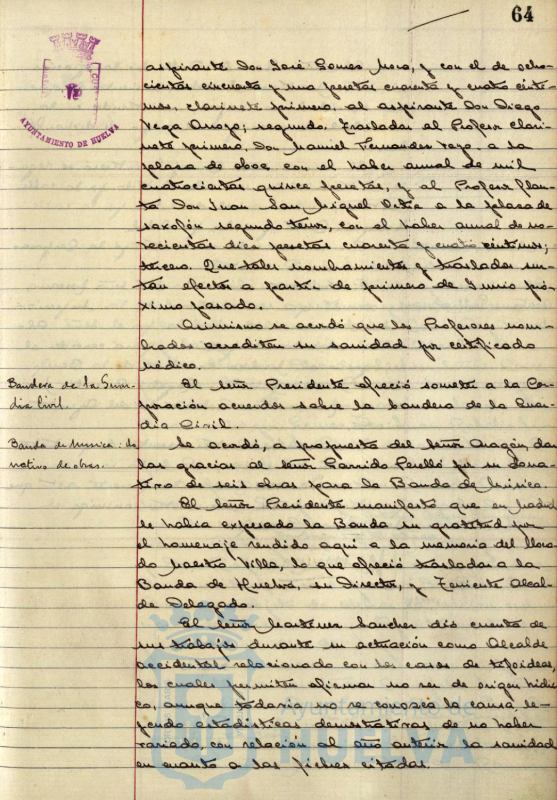 64
AYUNTAMIENTO DE HUELVA
aspirante Don José Gomez Mora, y con el de ocho-
cientas cincuenta y una pesetas cuarenta y cuatro cénti-
mos, clarinete primero, al aspirante Don Diego
Vega Arroyo; segundo. Trasladar al Profesor clari-
nete primero, Don Manuel Fernandez Vega, a la
plaza de oboe, con el haber anual de mil
cuatrocientas quince pesetas, y al Profesor Flau-
ta Don Juan San Miguel a la plaza de
saxofón segundo tenor, con el haber anual de no-
vecientas diez pesetas cuarenta y cuatro céntimos;
tercero. Que tales nombramientos y traslados sur-
tan efectos a partir de primero de Junio pró-
ximo pasado.
Asimismo se acordó que los Profesores nom-
brados acrediten su sanidad por certificado
médico.
Bandera de la Guar-
dia Civil.
El señor Presidente ofreció someter a la Cor-
poración acuerdos sobre la bandera de la Guar-
dia Civil.
Banda de musica: do-
nativo de obras.
Se acordó, a propuesta del señor Aragón, dar
las gracias al señor Garrido Perelló por su dona-
tivo de seis obras para la Banda de Música.
El señor Presidente manifestó que en Madrid
le había expresado la Banda su gratitud por
el homenaje rendido aquí a la memoria del llora-
do Maestro Villa, lo que ofreció trasladar a la
Banda de Huelva, su Director, y Teniente Alcal-
de Delegado.
El señor Martinez Sanchez dió cuenta de
sus trabajos durante su actuación como Alcalde
accidental relacionado con los casos de tifoideas,
los cuales permiten afirmar no ser de origen hídri-
co, aunque todavía no se conozca la causa, le-
yendo estadísticas demostrativas de no haber
variado, con relación al año anterior la sanidad
en cuanto a las fiebres citadas.
Ayuntamiento de
HUELVA